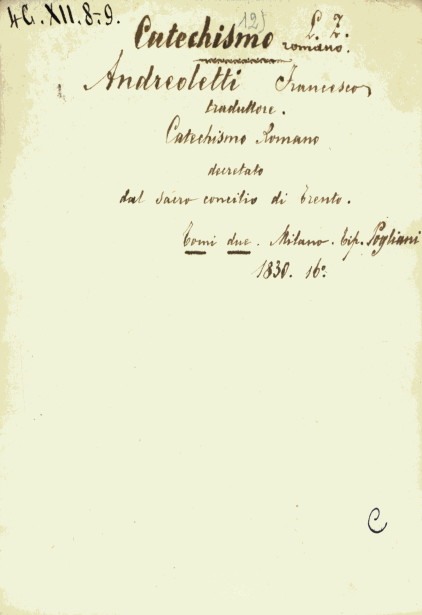 4G. XII. 8-9.
125
L. Z.
Catechismo romano.
Andreoletti Francesco
traduttore.
Catechismo Romano
decretato
dal sacro concilio di Trento.
Tomi due. Milano. Tip. Pogliani
1830. 16º.
C